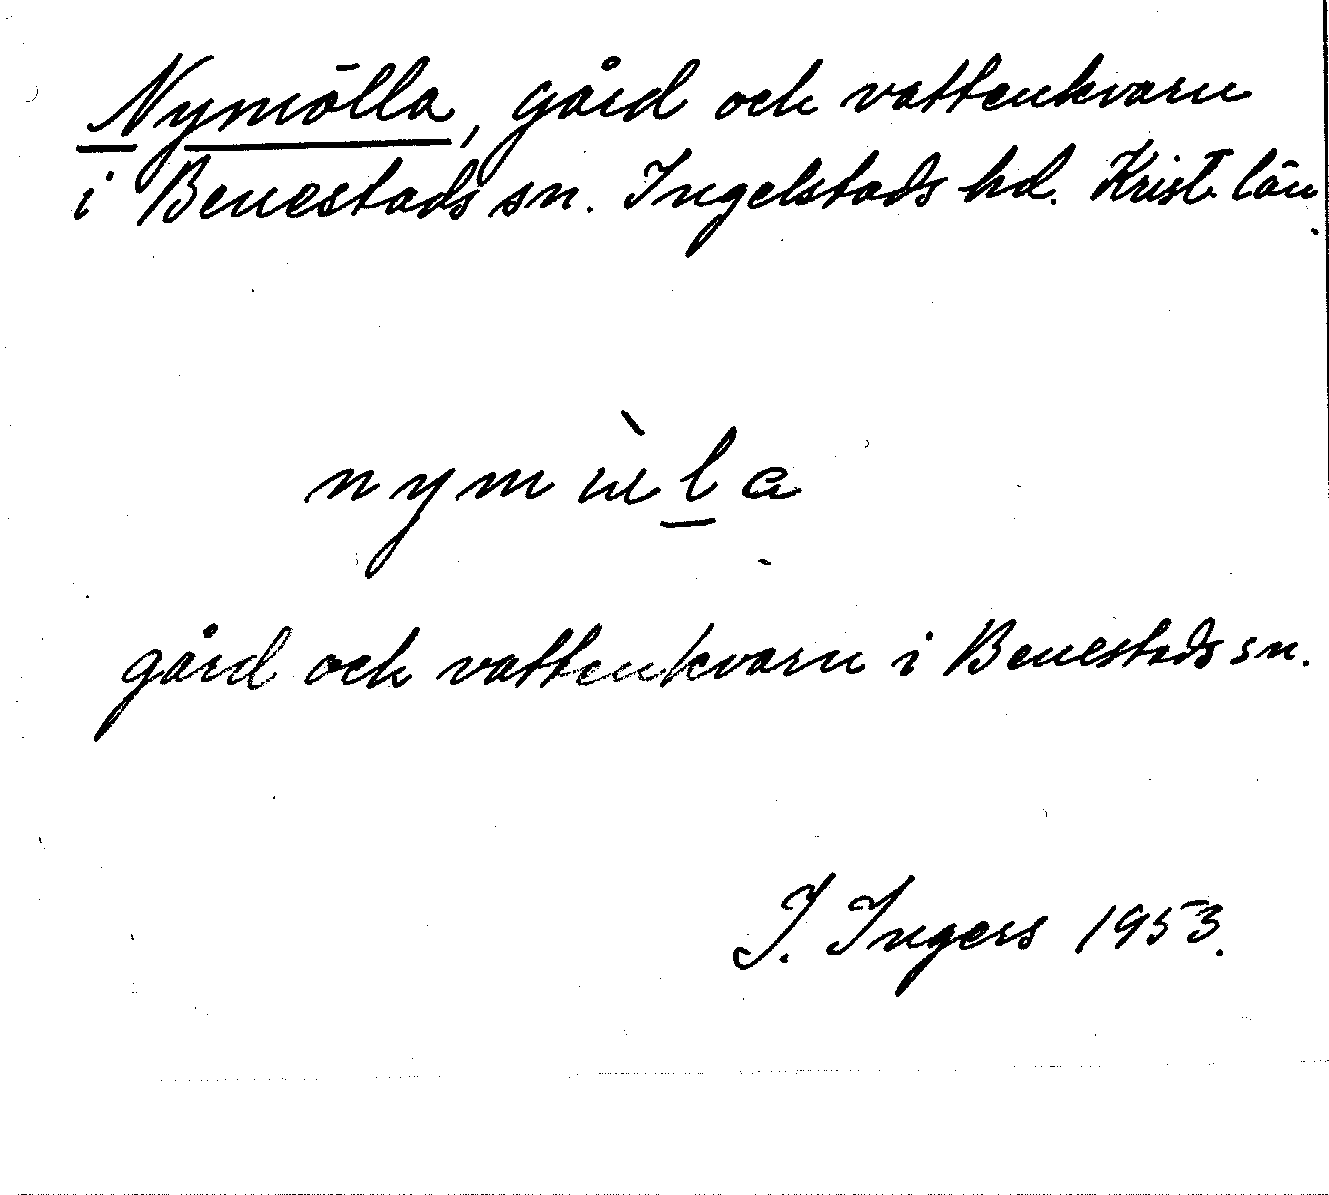 Nymölla, gård och vattenkvarn
i Benestads sn. Ingelstads hd. Krist. län.
gård och vattenkvarn i Benestads sn.
I. Ingers 1953.